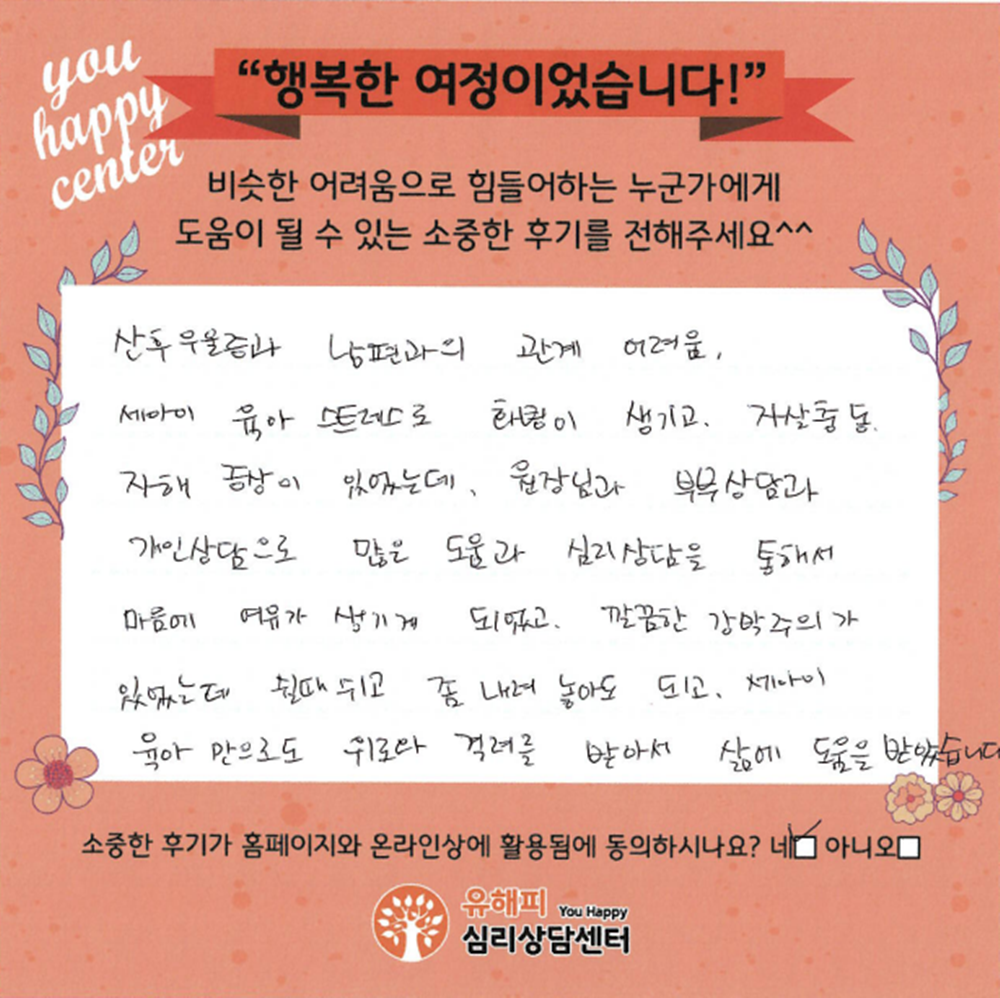 you
happy
center
“행복한 여정이었습니다!”
비슷한 어려움으로 힘들어하는 누군가에게
도움이 될 수 있는 소중한 후기를 전해주세요^^
산후우울증과 남편과의 관계 어려움,
세아이 육아 스트레스로 생기고, 자살충동,
자해 증상이 있었는데, 원장님과 부부상담과
개인상담으로 많은 도움과 심리상담을 통해서
마음에 여유가 생기게 되었고, 깔끔한 강박주의가
있었는데 쉴때 쉬고 좀 내려 놓아도 되고, 세아이
육아 만으로도 위로와 격려를 받아서 삶에 도움을 받았습니다
소중한 후기가 홈페이지와 온라인상에 활용됨에 동의하시나요? 네 아니오
유해피 You Happy
심리상담센터